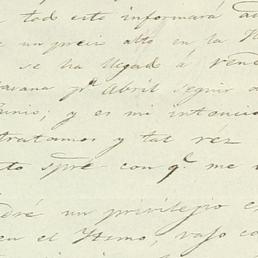 tod esto informará
un precio alto en la
se ha llegad a
avana pr Abril seguir
Junio; y es mi intencio
tratamos y tal véz
to spre con q. me
un privilegio e
en el Itsmo, vajo